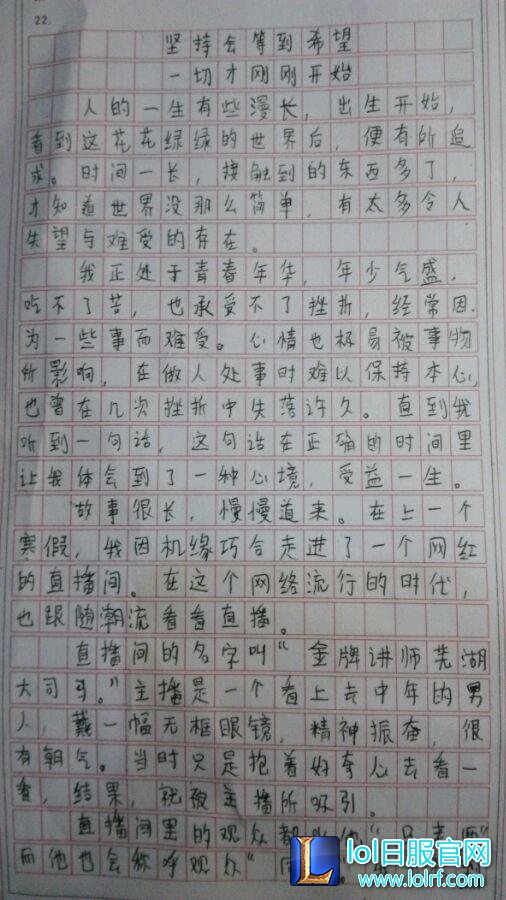 22.
坚持会等到希望
一切才刚刚开始
人的一生有些漫长，出生开始，
看到这花花绿绿的世界后，便有所追
求。时间一长，接触到的东西多了，
才知道世界没那么简单，有太多令人
失望与难受的存在。
我正处于青春年华，年少气盛，
吃不了苦，也承受不了挫折，经常因
为一些事而难受。心情也极易被事物
所影响，在做人处事时难以保持本心，
也曾在几次挫折中失落许久。直到我
听到一句话，这句话在正确的时间里
让我体会到了一种心境，受益一生。
故事很长，慢慢道来。在上一个
寒假，我因机缘巧合走进了一个网红
的直播间。在这个网络流行的时代，
也跟随潮流看看直播。
直播间的名字叫“金牌讲师芜湖
大司马。”主播是一个看上去中年的男
人，戴一幅无框眼镜，精神振奋，很
有朝气。当时只是抱着好奇心去看一
看，结果，就被主播所吸引。
直播间里的观众都
而他也会称呼观众“
lol日服官网
www.lolrf.com